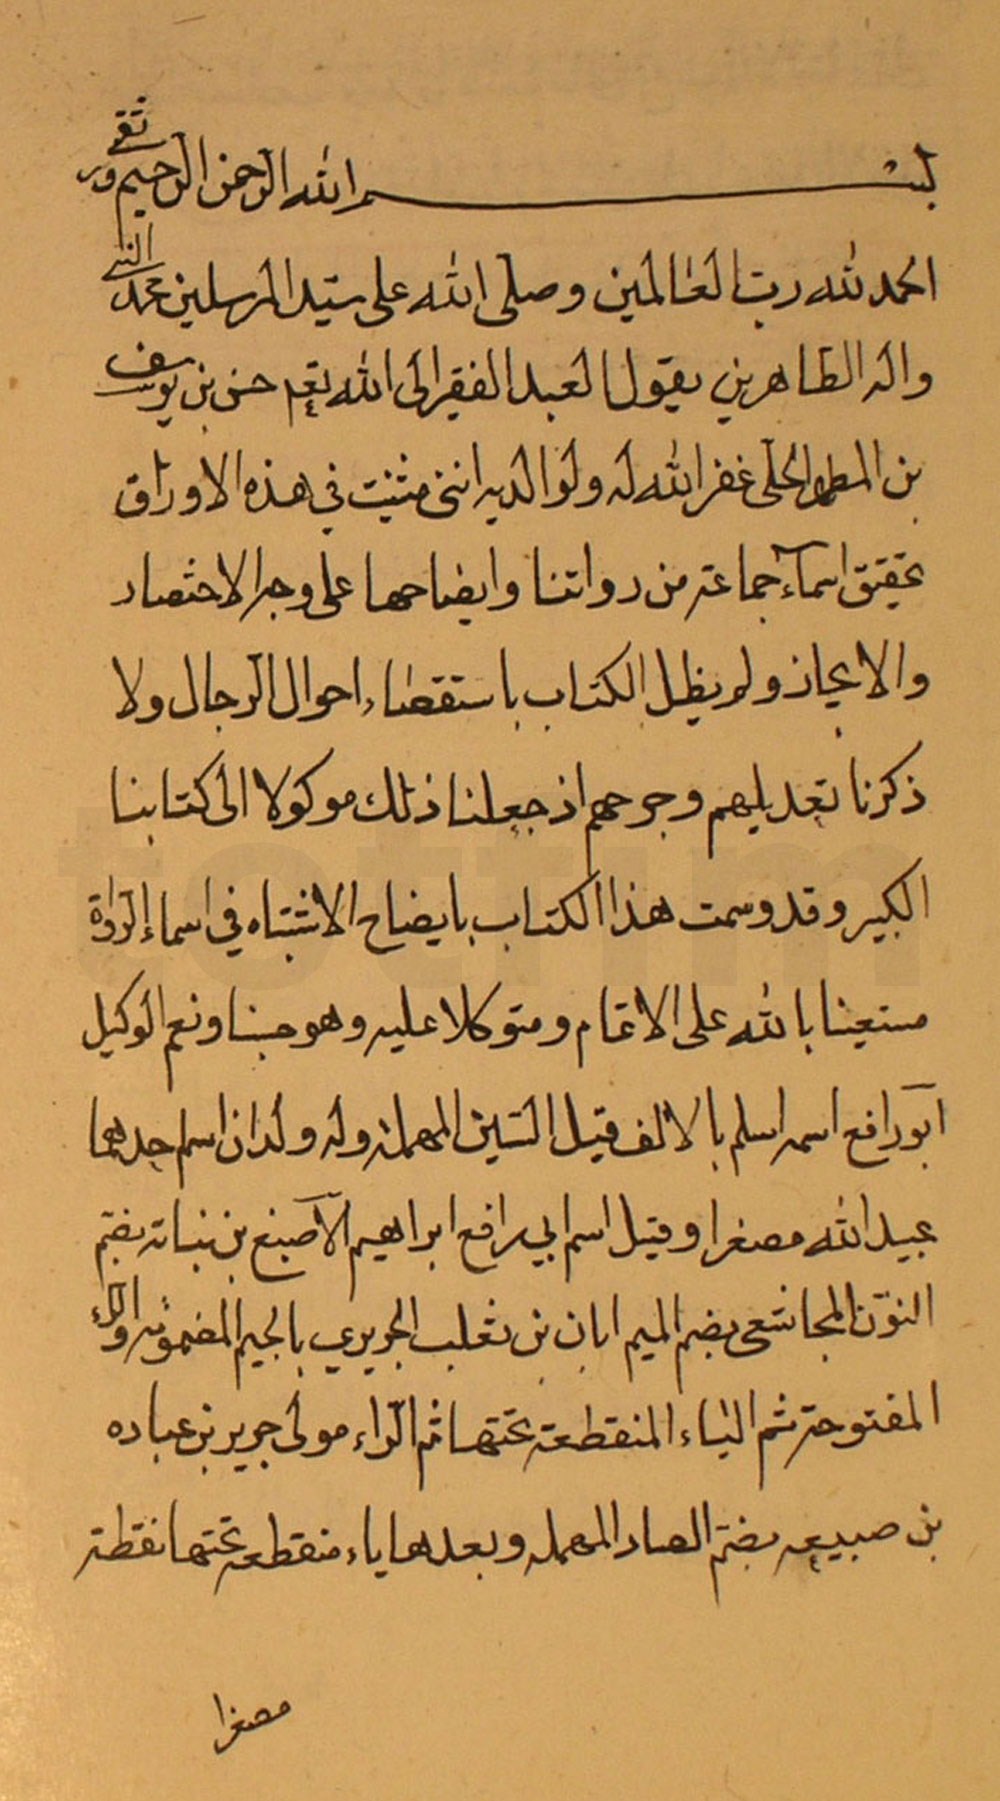 بسم الله الرحمن الرحيم وبه ثقتي
الحمد لله رب العالمين وصلى الله على سيد المرسلين محمد النبي
واله الطاهرين يقول العبد الفقير الى الله تعم حسن بن يوسف
بن المطهر الحلى غفر الله له ولوالديه انني مثبت في هذه الاوراق
تحقيق اسماء جماعة من رواتنا وايضاحها على وجه الاختصار
والايجاز ولم يطل الكتاب باستقصاء احوال الرجال ولا
ذكرنا تعديلهم وجرحهم اذ جعلنا ذلك موكولا الى كتابنا
الكبير وقد وسمت هذا الكتاب بايضاح الاشتباه في اسماء الرواة
مستعينا بالله على الاتمام ومتوكلا عليه وهو حسبنا ونعم الوكيل
ابو رافع اسمه اسلم بالالف قبل السين المهملة وله ولدان اسم احدهما
عبيد الله مصغرا وقيل اسم ابي رافع ابراهيم الاصبغ بن نباته بضم
النون المجاشعى بضم الميم ابان بن تغلب الجريري بالجيم المضمومة والراء
المفتوحة ثم الياء المنقطعة تحتها ثم الراء مولى جرير بن عباده
بن صبيعه بضم الصاد المهمله وبعدها ياء منقطعه تحتها نقطة
مصغرا